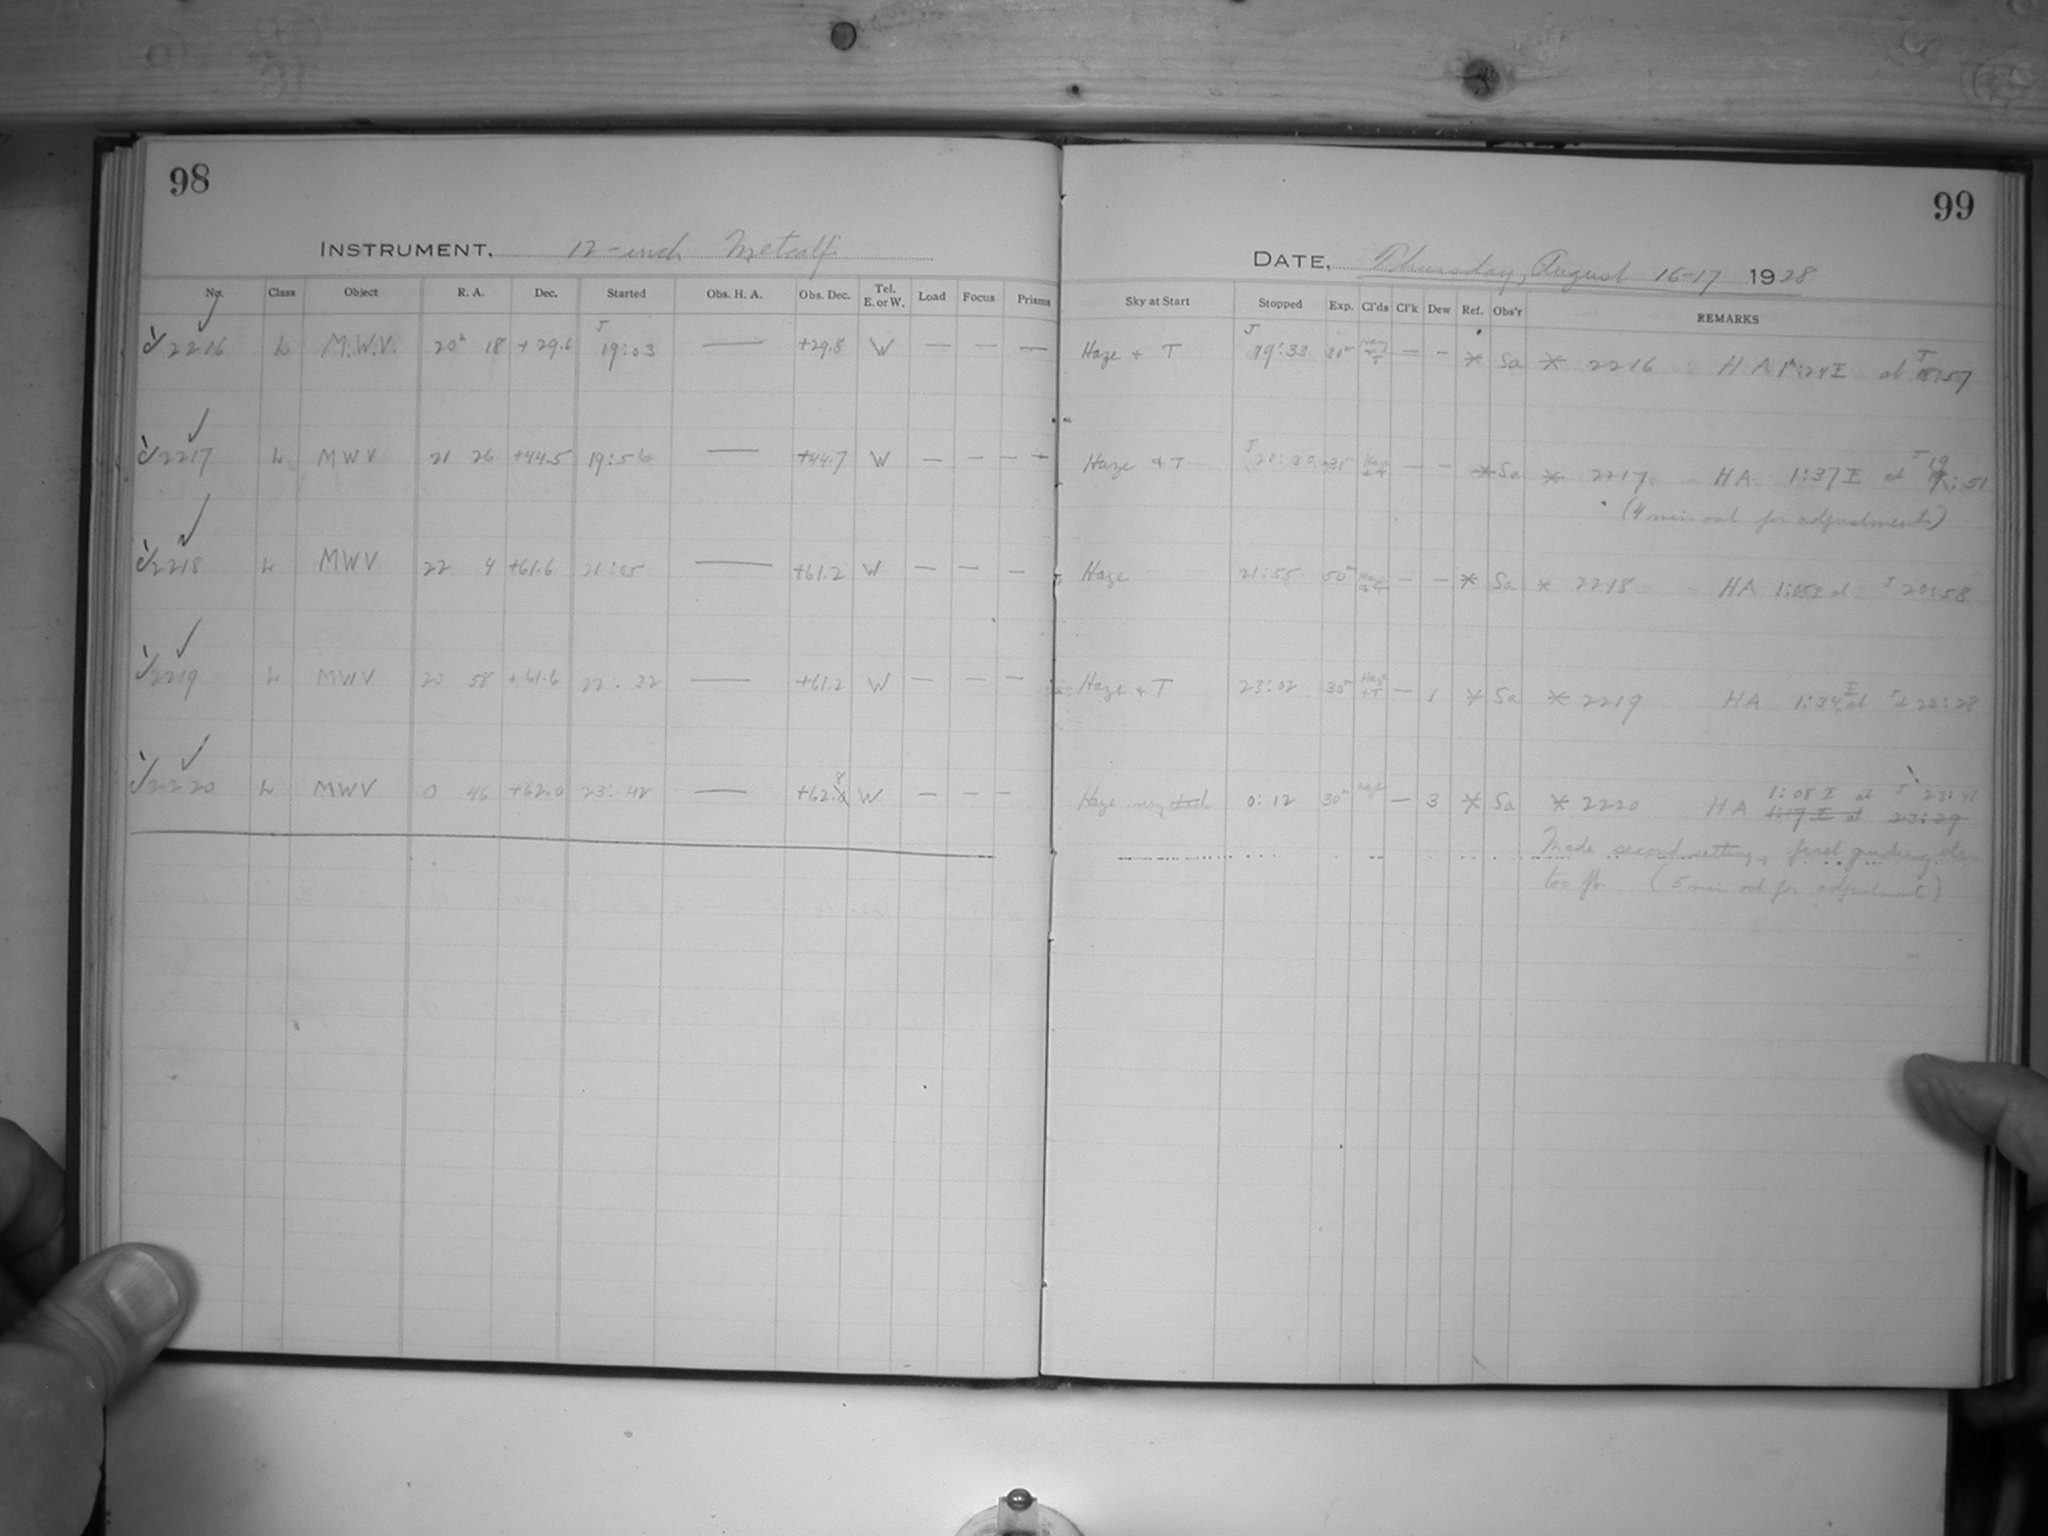 98
INSTRUMENT. 12-inch Metcalf
No. Class Object R. A. Dec. Started Obs. H. A. Obs. Dec. Tel. E. or W. Load Focus Prisms
2216 L M.W.V. 20h 18 +29.6 J 19:03 — +29.8 W — — —
2217 L MWV 21 26 +44.5 19:56 — +44.7 W — — —
2218 L MWV 22 4 +61.6 21:05 — +61.2 W — — —
2219 L MWV 23 58 +61.6 22:32 — +61.2 W — — —
2220 L MWV 0 46 +62.0 23:42 — +62.8 W — — —
99
DATE, Thursday, August 16-17 1928
Sky at Start Stopped Exp. Cl'ds Cl'k Dew Ref. Obs'r REMARKS
Haze + T J 19:33 30m Haze + T — — * Sa * 2216 HA 1h:24 E at J 18:57
Haze + T J 20:30 30m Haze + T — — * Sa * 2217 HA 1:37 E at J 19:51
(4 min out for adjustment)
Haze 21:55 50m Haze + T — — * Sa * 2218 HA 1:05 E at J 20:58
Haze + T 23:02 30m Haze + T — 1 * Sa * 2219 HA 1:34 E at J 22:28
Haze, very thick 0:12 30m haze — 3 * Sa * 2220 HA 1:08 E at J
23:29
Made second setting, first guiding str.
too ft. (5 min out for adjustment)